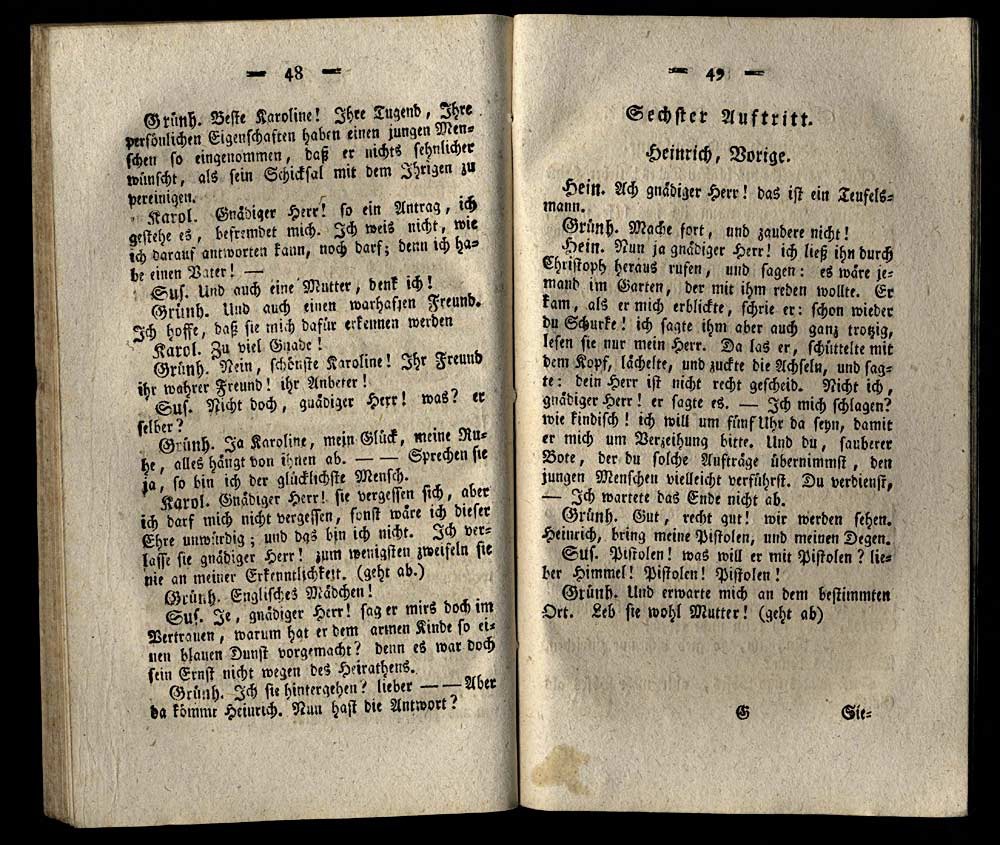 — 48 —
Grünh. Beste Karoline! Ihre Tugend, Ihre
persönlichen Eigenschaften haben einen jungen Men=
schen so eingenommen, daß er nichts sehnlicher
wünscht, als sein Schicksal mit dem Ihrigen zu
vereinigen.
Karol. Gnädiger Herr! so ein Antrag, ich
gestehe es, befremdet mich. Ich weis nicht, wie
ich darauf antworten kann, noch darf; denn ich ha=
be einen Vater! —
Sus. Und auch eine Mutter, denk ich!
Grünh. Und auch einen warhaften Freund.
Ich hoffe, daß sie mich dafür erkennen werden
Karol. Zu viel Gnade!
Grünh. Nein, schönste Karoline! Ihr Freund
ihr wahrer Freund! ihr Anbeter!
Sus. Nicht doch, gnädiger Herr! was? er
selber?
Grünh. Ja Karoline, mein Glück, meine Ru=
he, alles hängt von ihnen ab. — — Sprechen sie
ja, so bin ich der glücklichste Mensch.
Karol. Gnädiger Herr! sie vergessen sich, aber
ich darf mich nicht vergessen, sonst wäre ich dieser
Ehre unwürdig; und das bin ich nicht. Ich ver=
lasse sie gnädiger Herr! zum wenigsten zweifeln sie
nie an meiner Erkenntlichkeit. (geht ab.)
Grünh. Englisches Mädchen!
Sus. Je, gnädiger Herr! sag er mirs doch im
Vertrauen, warum hat er dem armen Kinde so ei=
nen blauen Dunst vorgemacht? denn es war doch
sein Ernst nicht wegen des Heirathens.
Grünh. Ich sie hintergehen? lieber — — Aber
da kömmt Heinrich. Nun hast die Antwort?
— 49 —
Sechster Auftritt.
Heinrich, Vorige.
Hein. Ach gnädiger Herr! das ist ein Teufels=
mann.
Grünh. Mache fort, und zaudere nicht!
Hein. Nun ja gnädiger Herr! ich ließ ihn durch
Christoph heraus rufen, und sagen: es wäre je=
mand im Garten, der mit ihm reden wollte. Er
kam, als er mich erblickte, schrie er: schon wieder
du Schurke! ich sagte ihm aber auch ganz trotzig,
lesen sie nur mein Herr. Da las er, schüttelte mit
dem Kopf, lächelte, und zuckte die Achseln, und sag=
te: dein Herr ist nicht recht gescheid. Nicht ich,
gnädiger Herr! er sagte es. — Ich mich schlagen?
wie kindisch! ich will um fünf Uhr da seyn, damit
er mich um Verzeihung bitte. Und du, sauberer
Bote, der du solche Aufträge übernimmst, den
jungen Menschen vielleicht verführst. Du verdienst,
— Ich wartete das Ende nicht ab.
Grünh. Gut, recht gut! wir werden sehen.
Heinrich, bring meine Pistolen, und meinen Degen.
Sus. Pistolen! was will er mit Pistolen? lie=
ber Himmel! Pistolen! Pistolen!
Grünh. Und erwarte mich an dem bestimmten
Ort. Leb sie wohl Mutter! (geht ab)
G Sie=